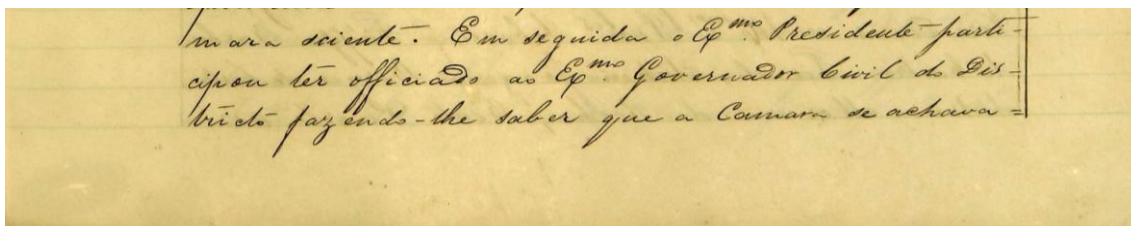 mara sciente. Em seguida o Ex.mo Presidente parti-
cipou ter officiado ao Ex.mo Governador Civil do Dis-
tricto fazendo-lhe saber que a Camara se achava =